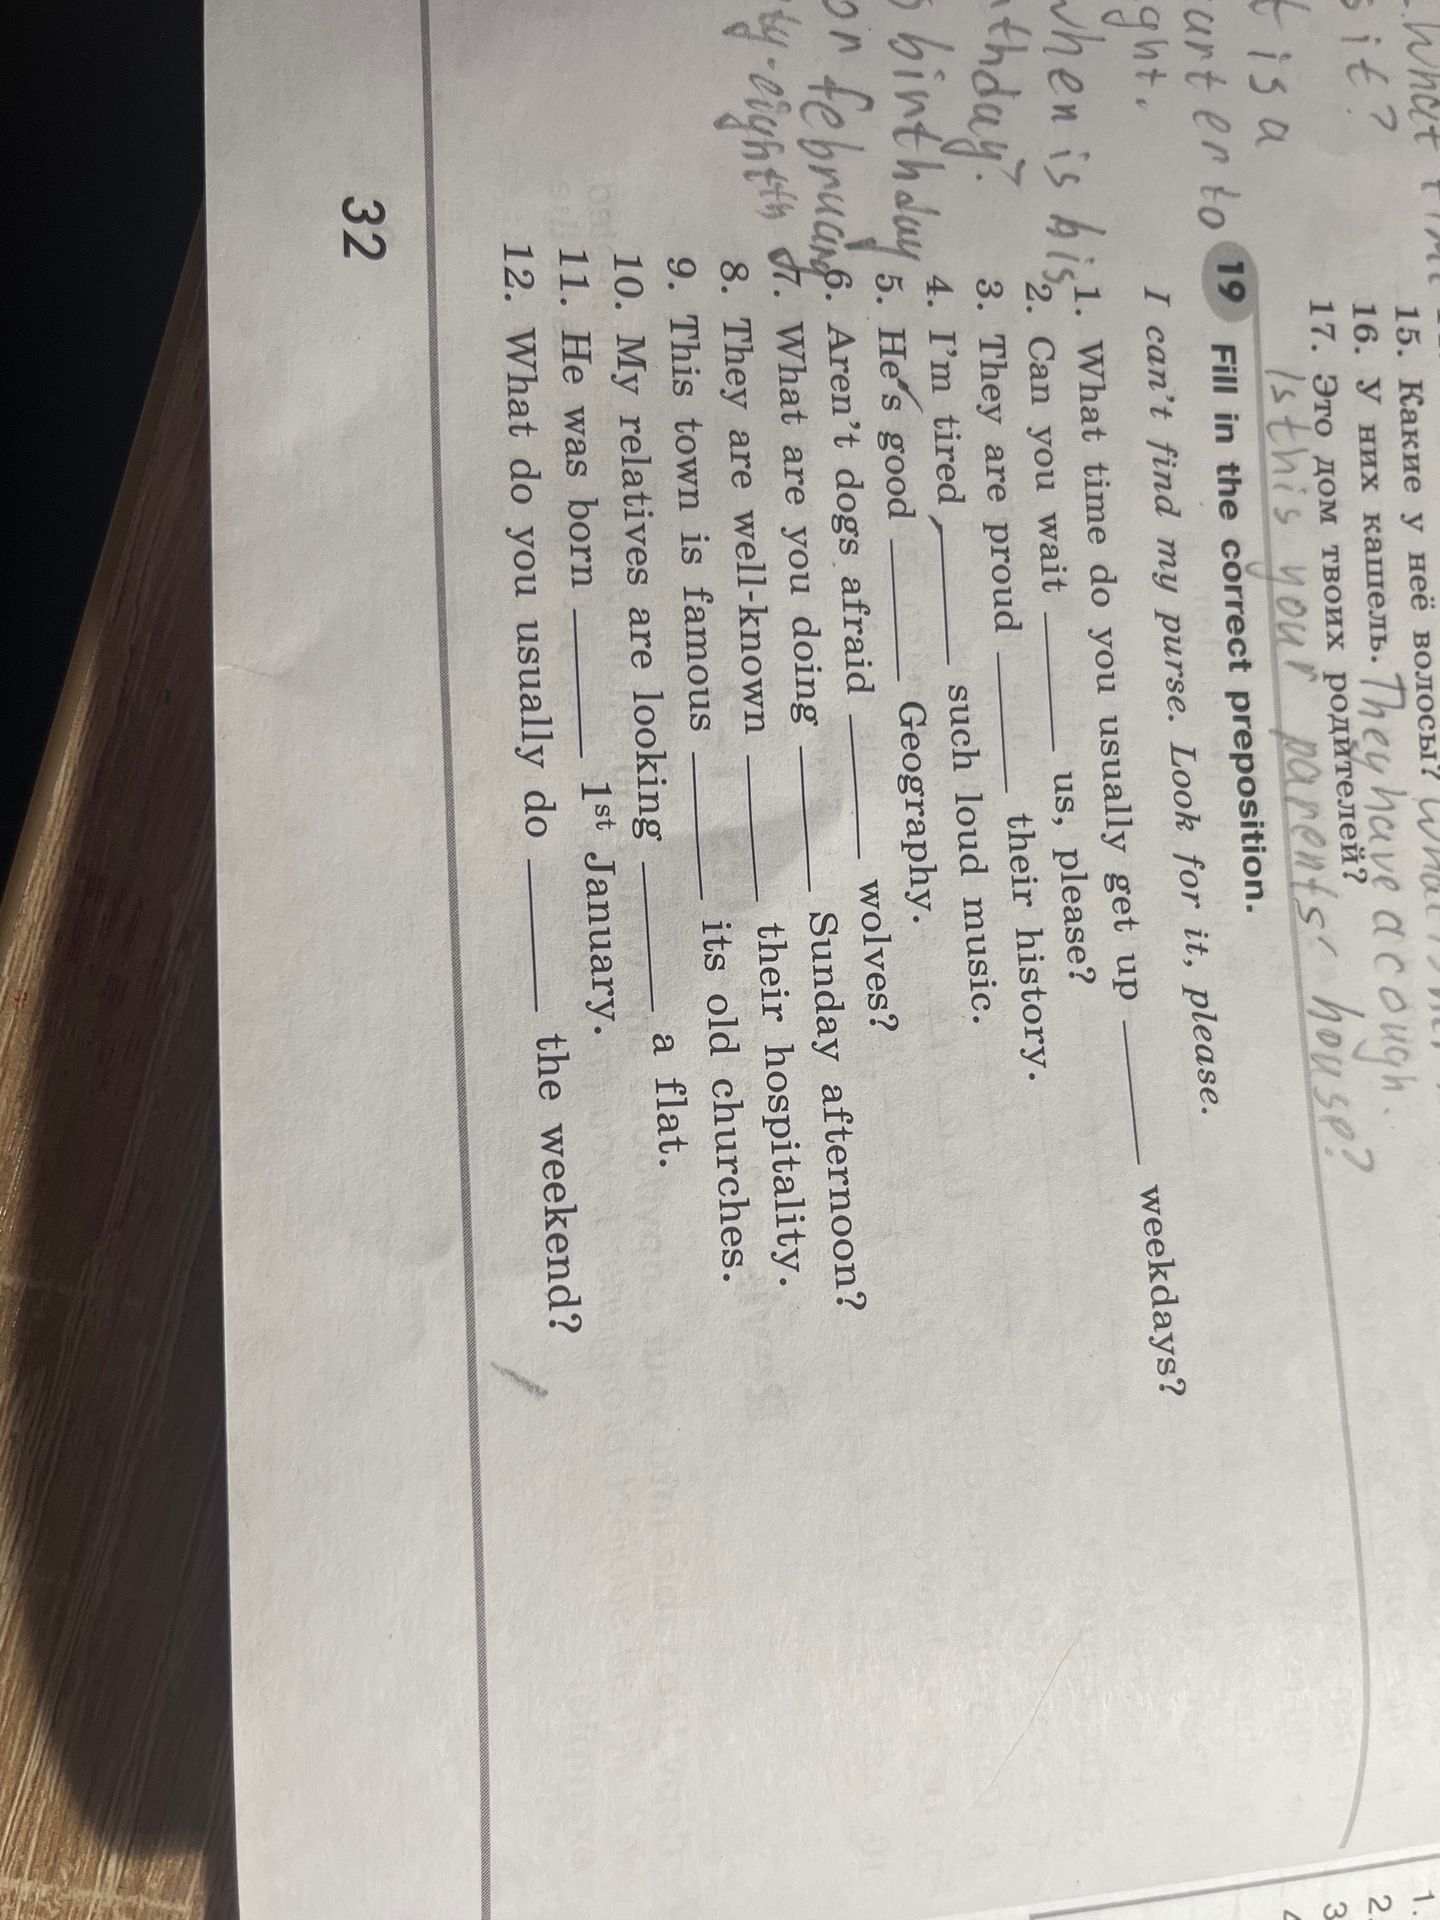 What tim
s it?
t is a
urter to
ght.
when is his
nthday?
s binthday
on february
ty-eightth
15. Какие у неё волосы? What is her
16. У них кашель. They have a cough.
17. Это дом твоих родителей?
Is this your parents' house?
19 Fill in the correct preposition.
I can't find my purse. Look for it, please.
1. What time do you usually get up ______ weekdays?
2. Can you wait ______ us, please?
3. They are proud ______ their history.
4. I'm tired ______ such loud music.
5. He's good ______ Geography.
6. Aren't dogs afraid ______ wolves?
7. What are you doing ______ Sunday afternoon?
8. They are well-known ______ their hospitality.
9. This town is famous ______ its old churches.
10. My relatives are looking ______ a flat.
11. He was born ______ 1st January.
12. What do you usually do ______ the weekend?
32
1.
2
3